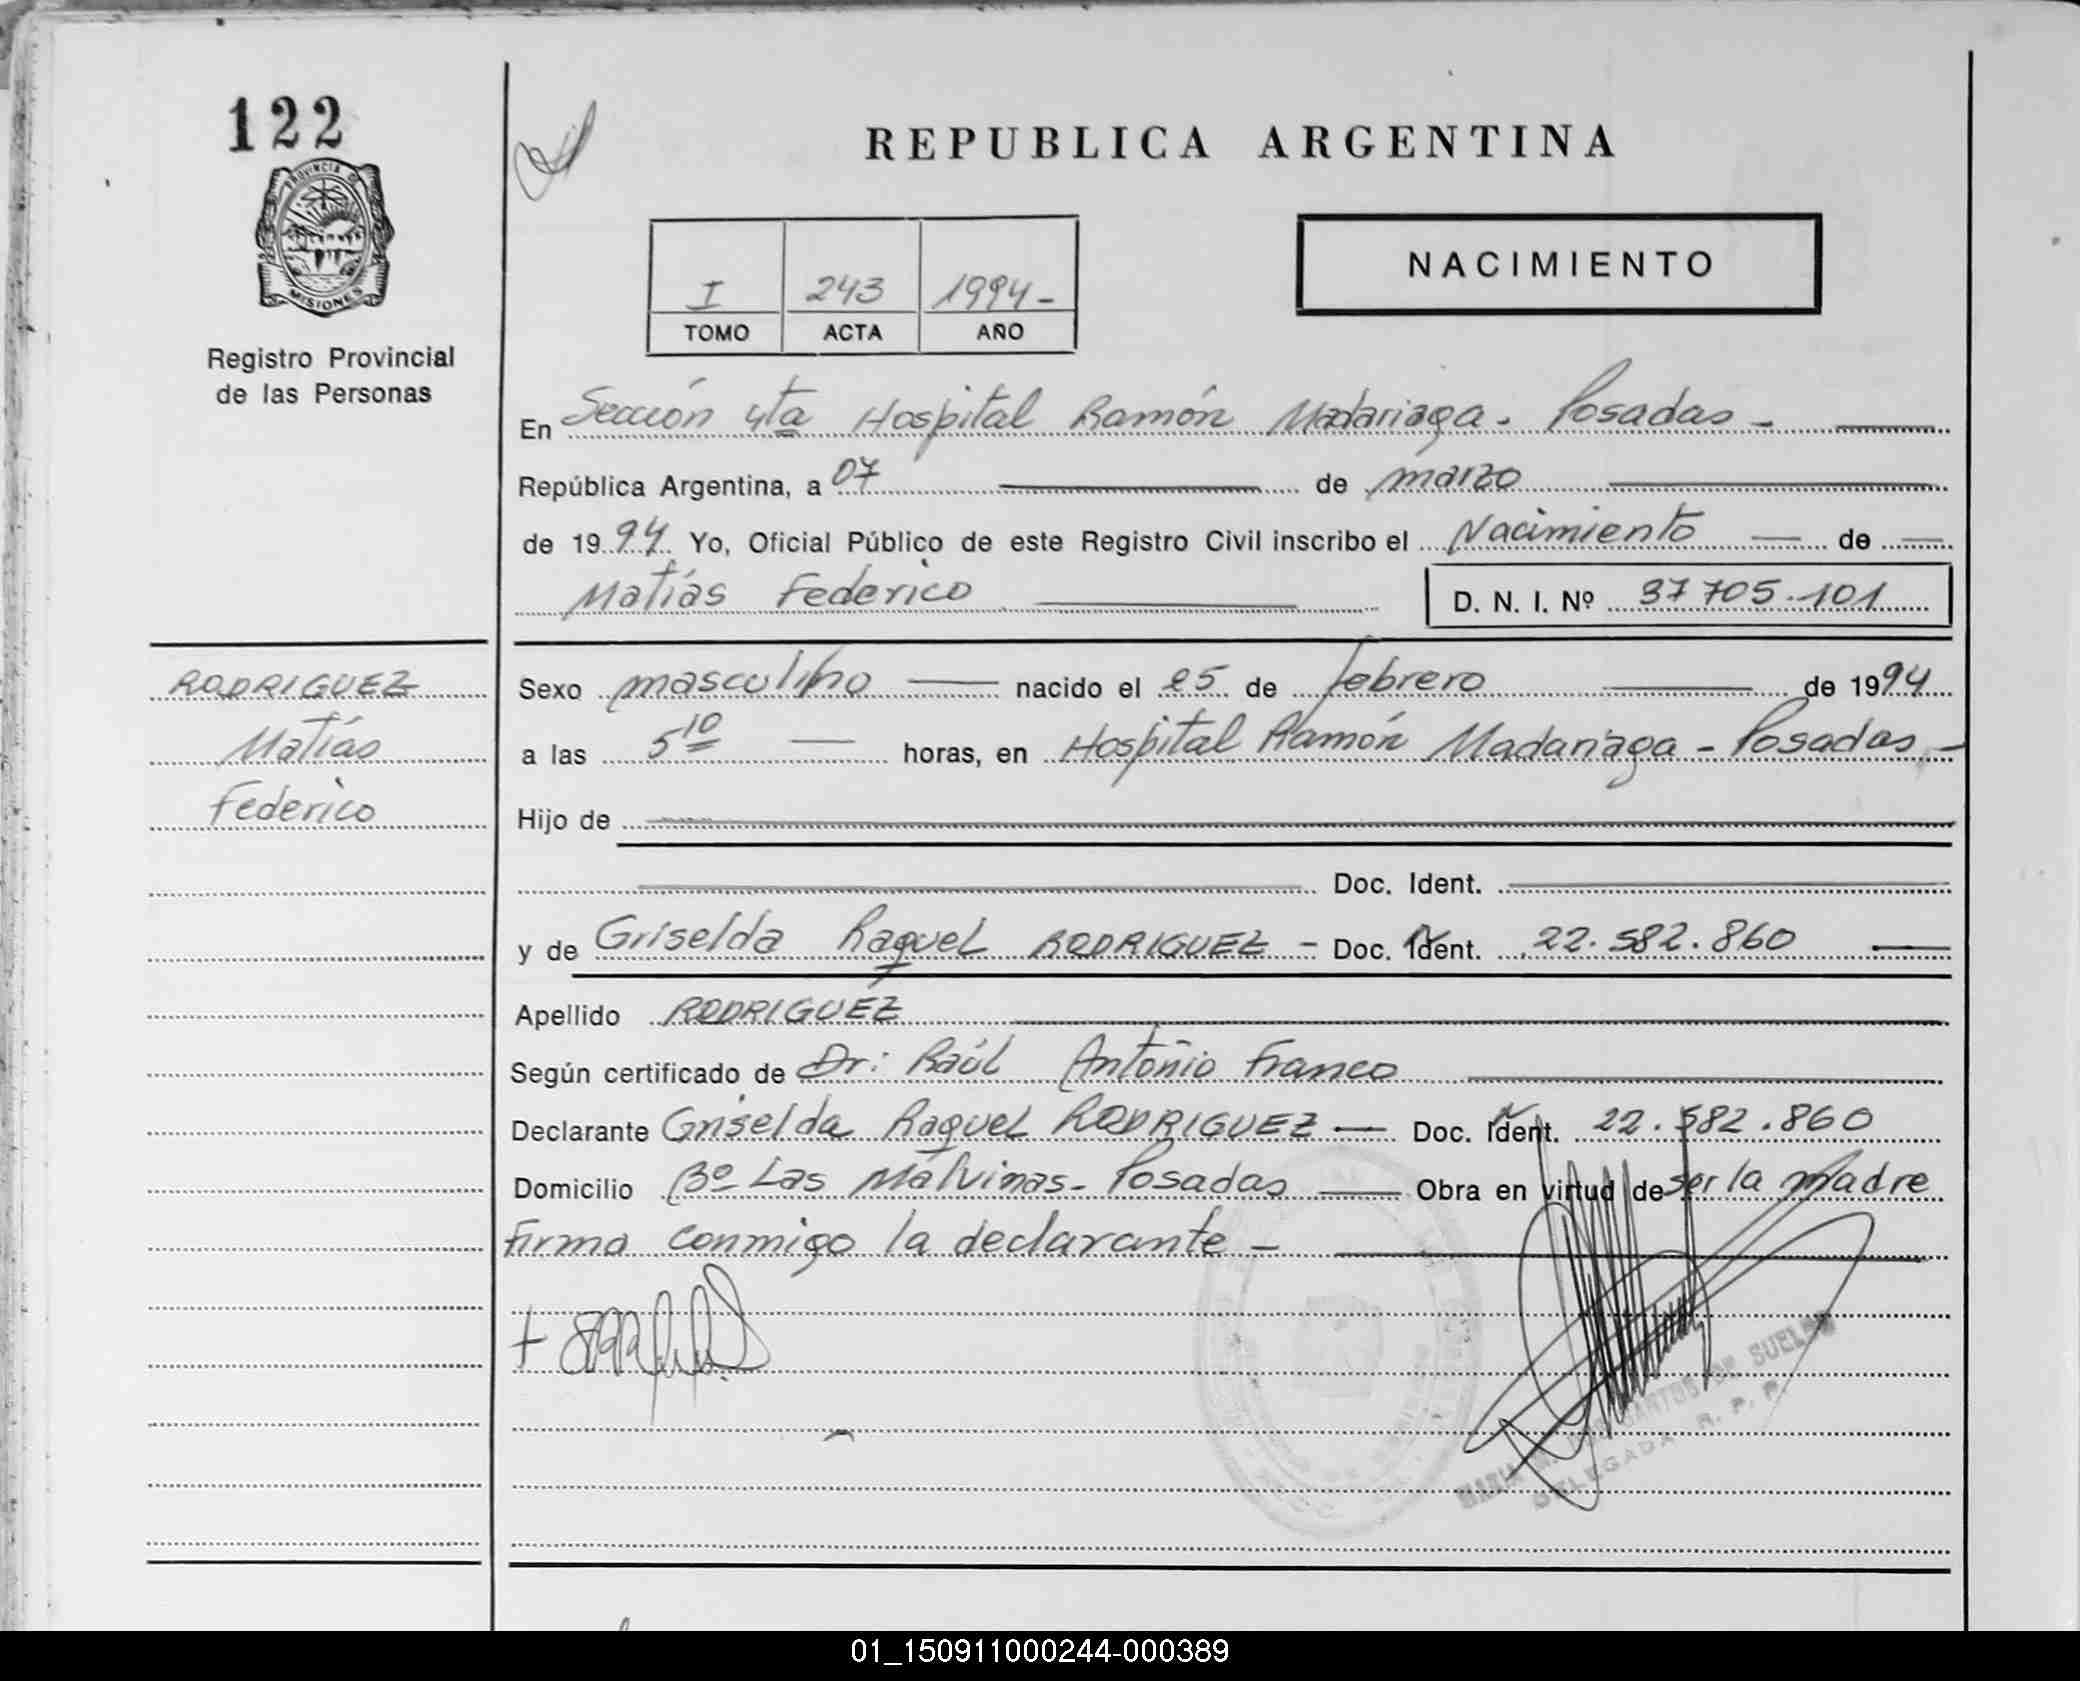 122
PROVINCIA DE
MISIONES
Registro Provincial
de las Personas
REPUBLICA ARGENTINA
I 243 1994-
TOMO ACTA AÑO
NACIMIENTO
En Sección 4ta Hospital Ramón Madariaga. Posadas -
República Argentina, a 07 de marzo
de 1994 Yo, Oficial Público de este Registro Civil inscribo el Nacimiento de
Matías Federico D. N. I. Nº 37705.101
RODRIGUEZ
Matías
Federico
Sexo masculino nacido el 25 de febrero de 1994
a las 5 10 horas, en Hospital Ramón Madariaga - Posadas -
Hijo de
Doc. Ident.
y de Griselda Raquel RODRIGUEZ - Doc. Ident. 22.582.860
Apellido RODRIGUEZ
Según certificado de Dr: Raúl Antonio Franco
Declarante Griselda Raquel RODRIGUEZ - Doc. Ident. 22.582.860
Domicilio Bº Las Malvinas- Posadas Obra en virtud de ser la Madre
Firma conmigo la declarante -
SANTOS DE SUELDO
DELEGADA R. P. P.
01_150911000244-000389